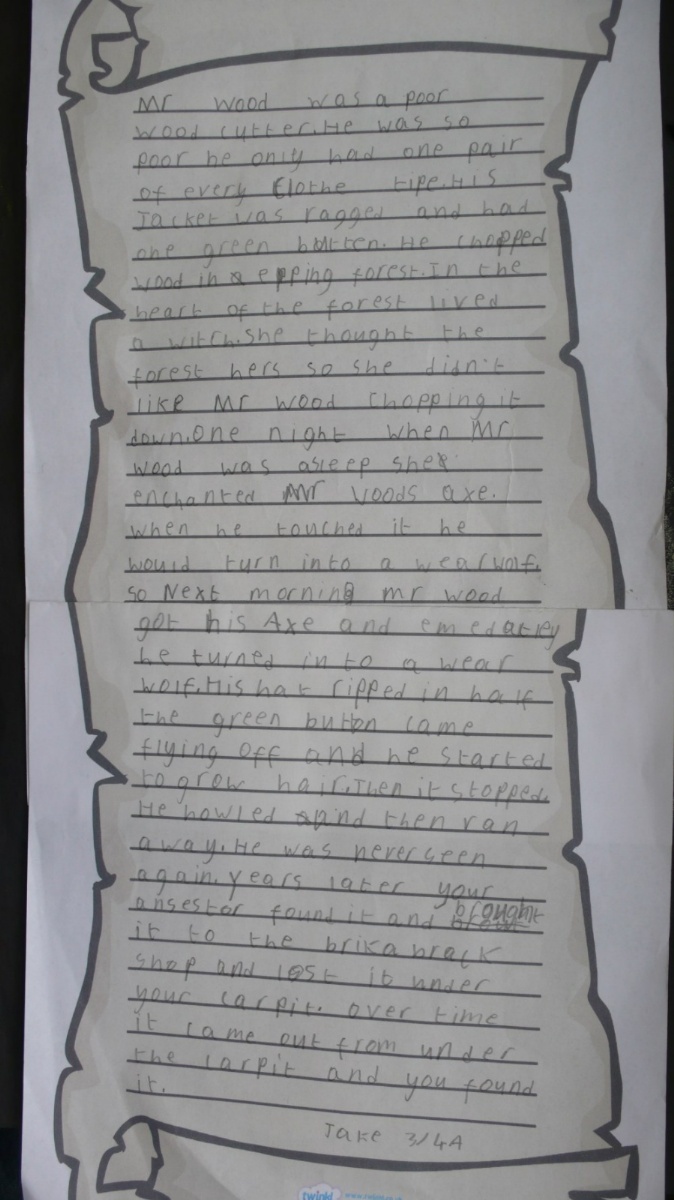 Mr Wood was a poor
wood cutter. He was so
poor he only had one pair
of every Clothe tipe. His
Jacket was ragged and had
one green butten. He chopped
wood in epping forest. In the
heart of the forest lived
a witch. She thought the
forest hers so she didn't
like Mr Wood chopping it
down. One night when Mr
Wood was asleep she
enchanted Mr Voods axe.
When he touched it he
would turn into a wearwolf.
so Next morning mr wood
got his Axe and emedatley
he turned in to a wear
wolf. His hat ripped in half
the green button came
flying off and he started
to grow hair. Then it stopped.
He howled and then ran
away. He was never seen
again. Years later your
ansestor found it and brought
it to the brikabrack
shop and lost it under
your carpit. over time
it came out from under
the carpit and you found
it.
Jake 3/4A
twinkl